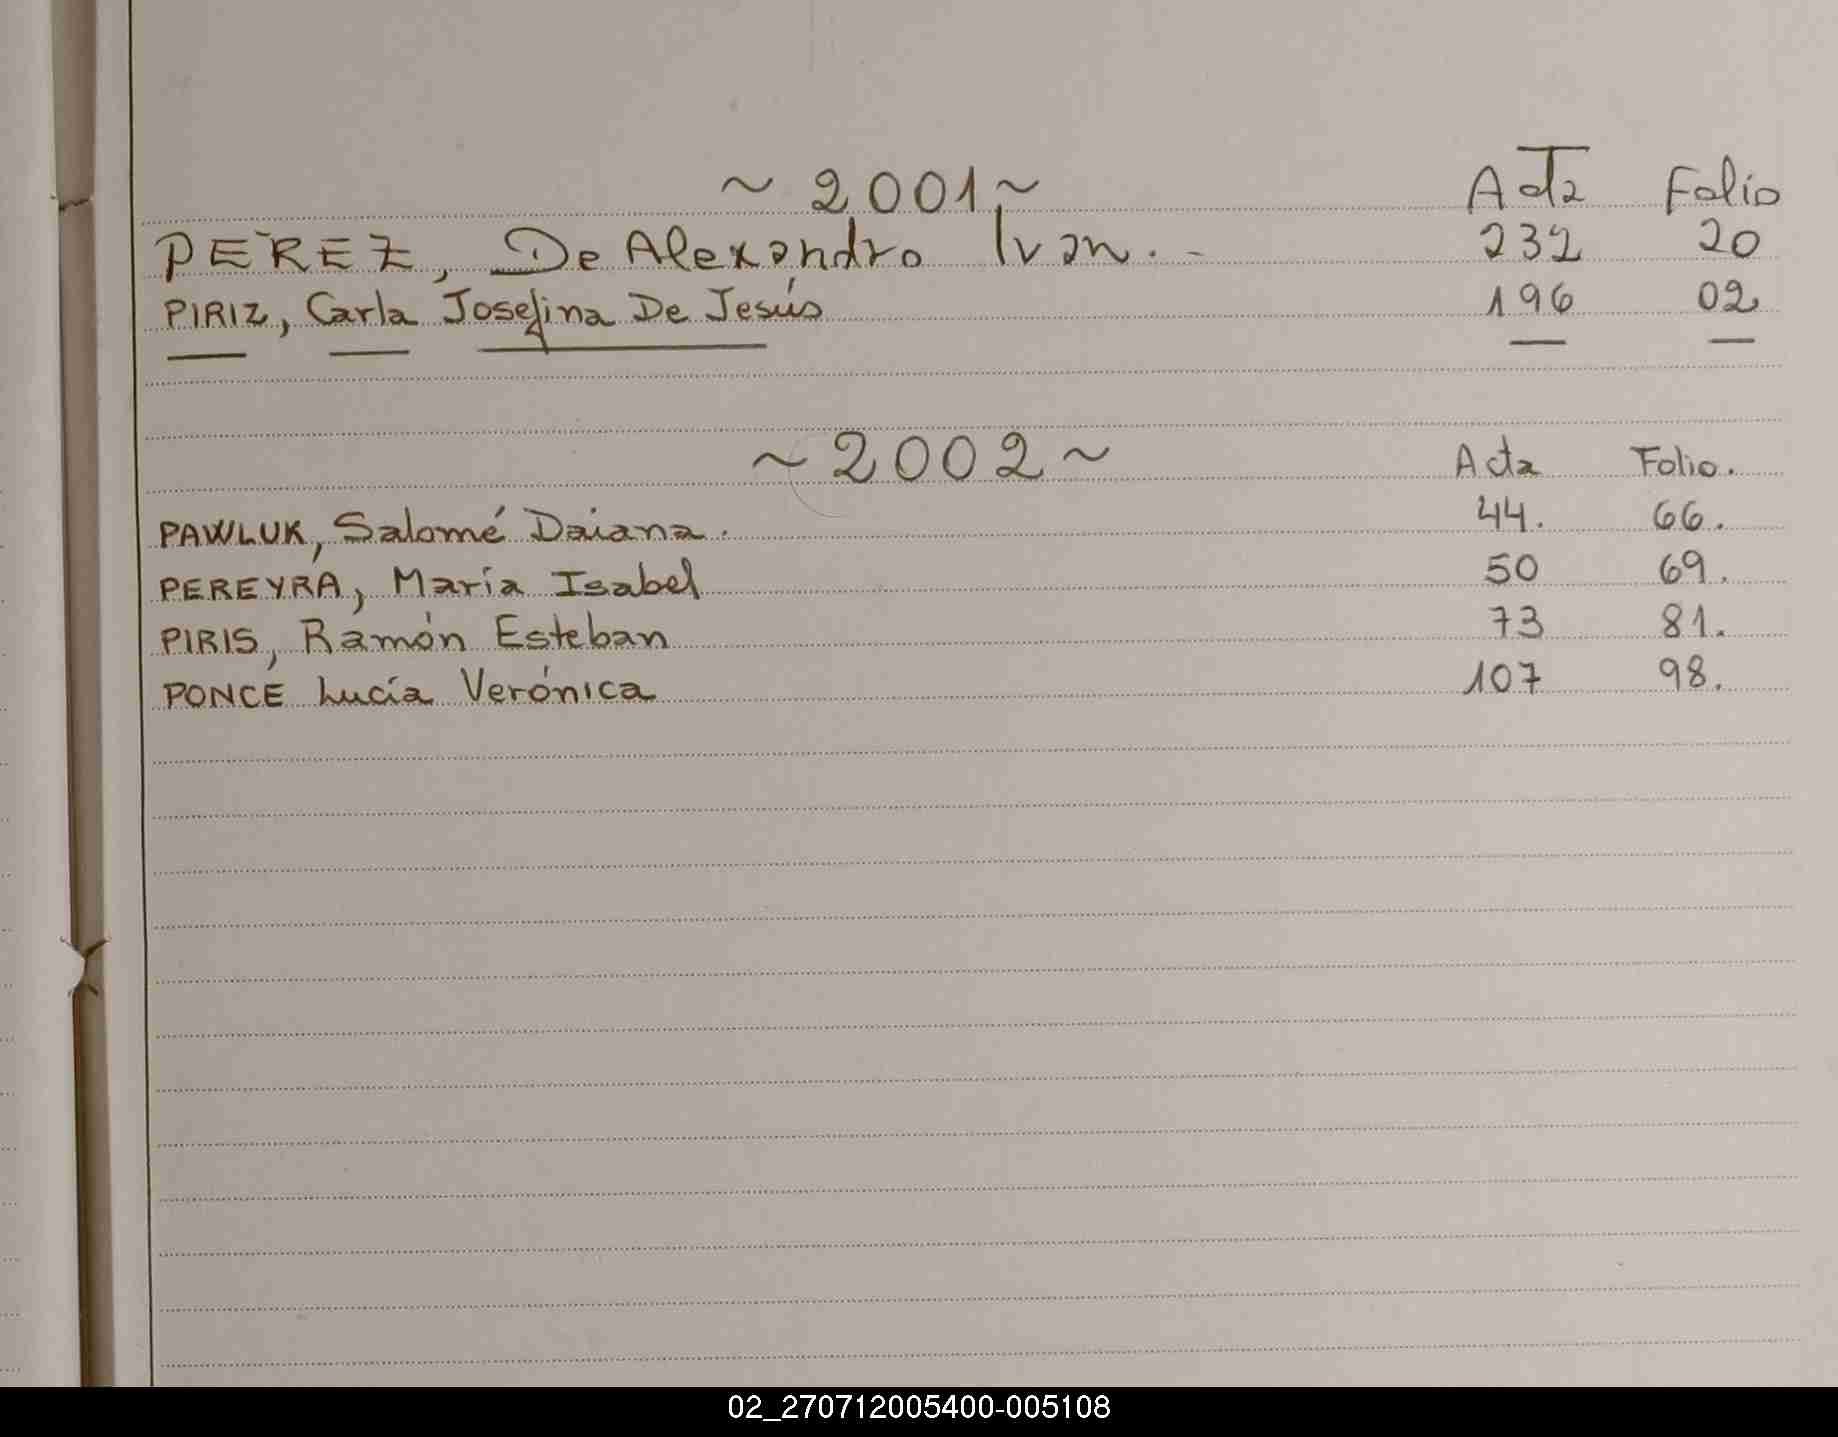 ~ 2001 ~ Acta Folio
PEREZ, De Alexandro Ivan. - 232 20
PIRIZ, Carla Josefina De Jesús 196 02
~ 2002 ~ Acta Folio.
PAWLUK, Salomé Daiana. 44. 66.
PEREYRA, María Isabel 50 69.
PIRIS, Ramón Esteban 73 81.
PONCE Lucía Verónica 107 98.
02_270712005400-005108